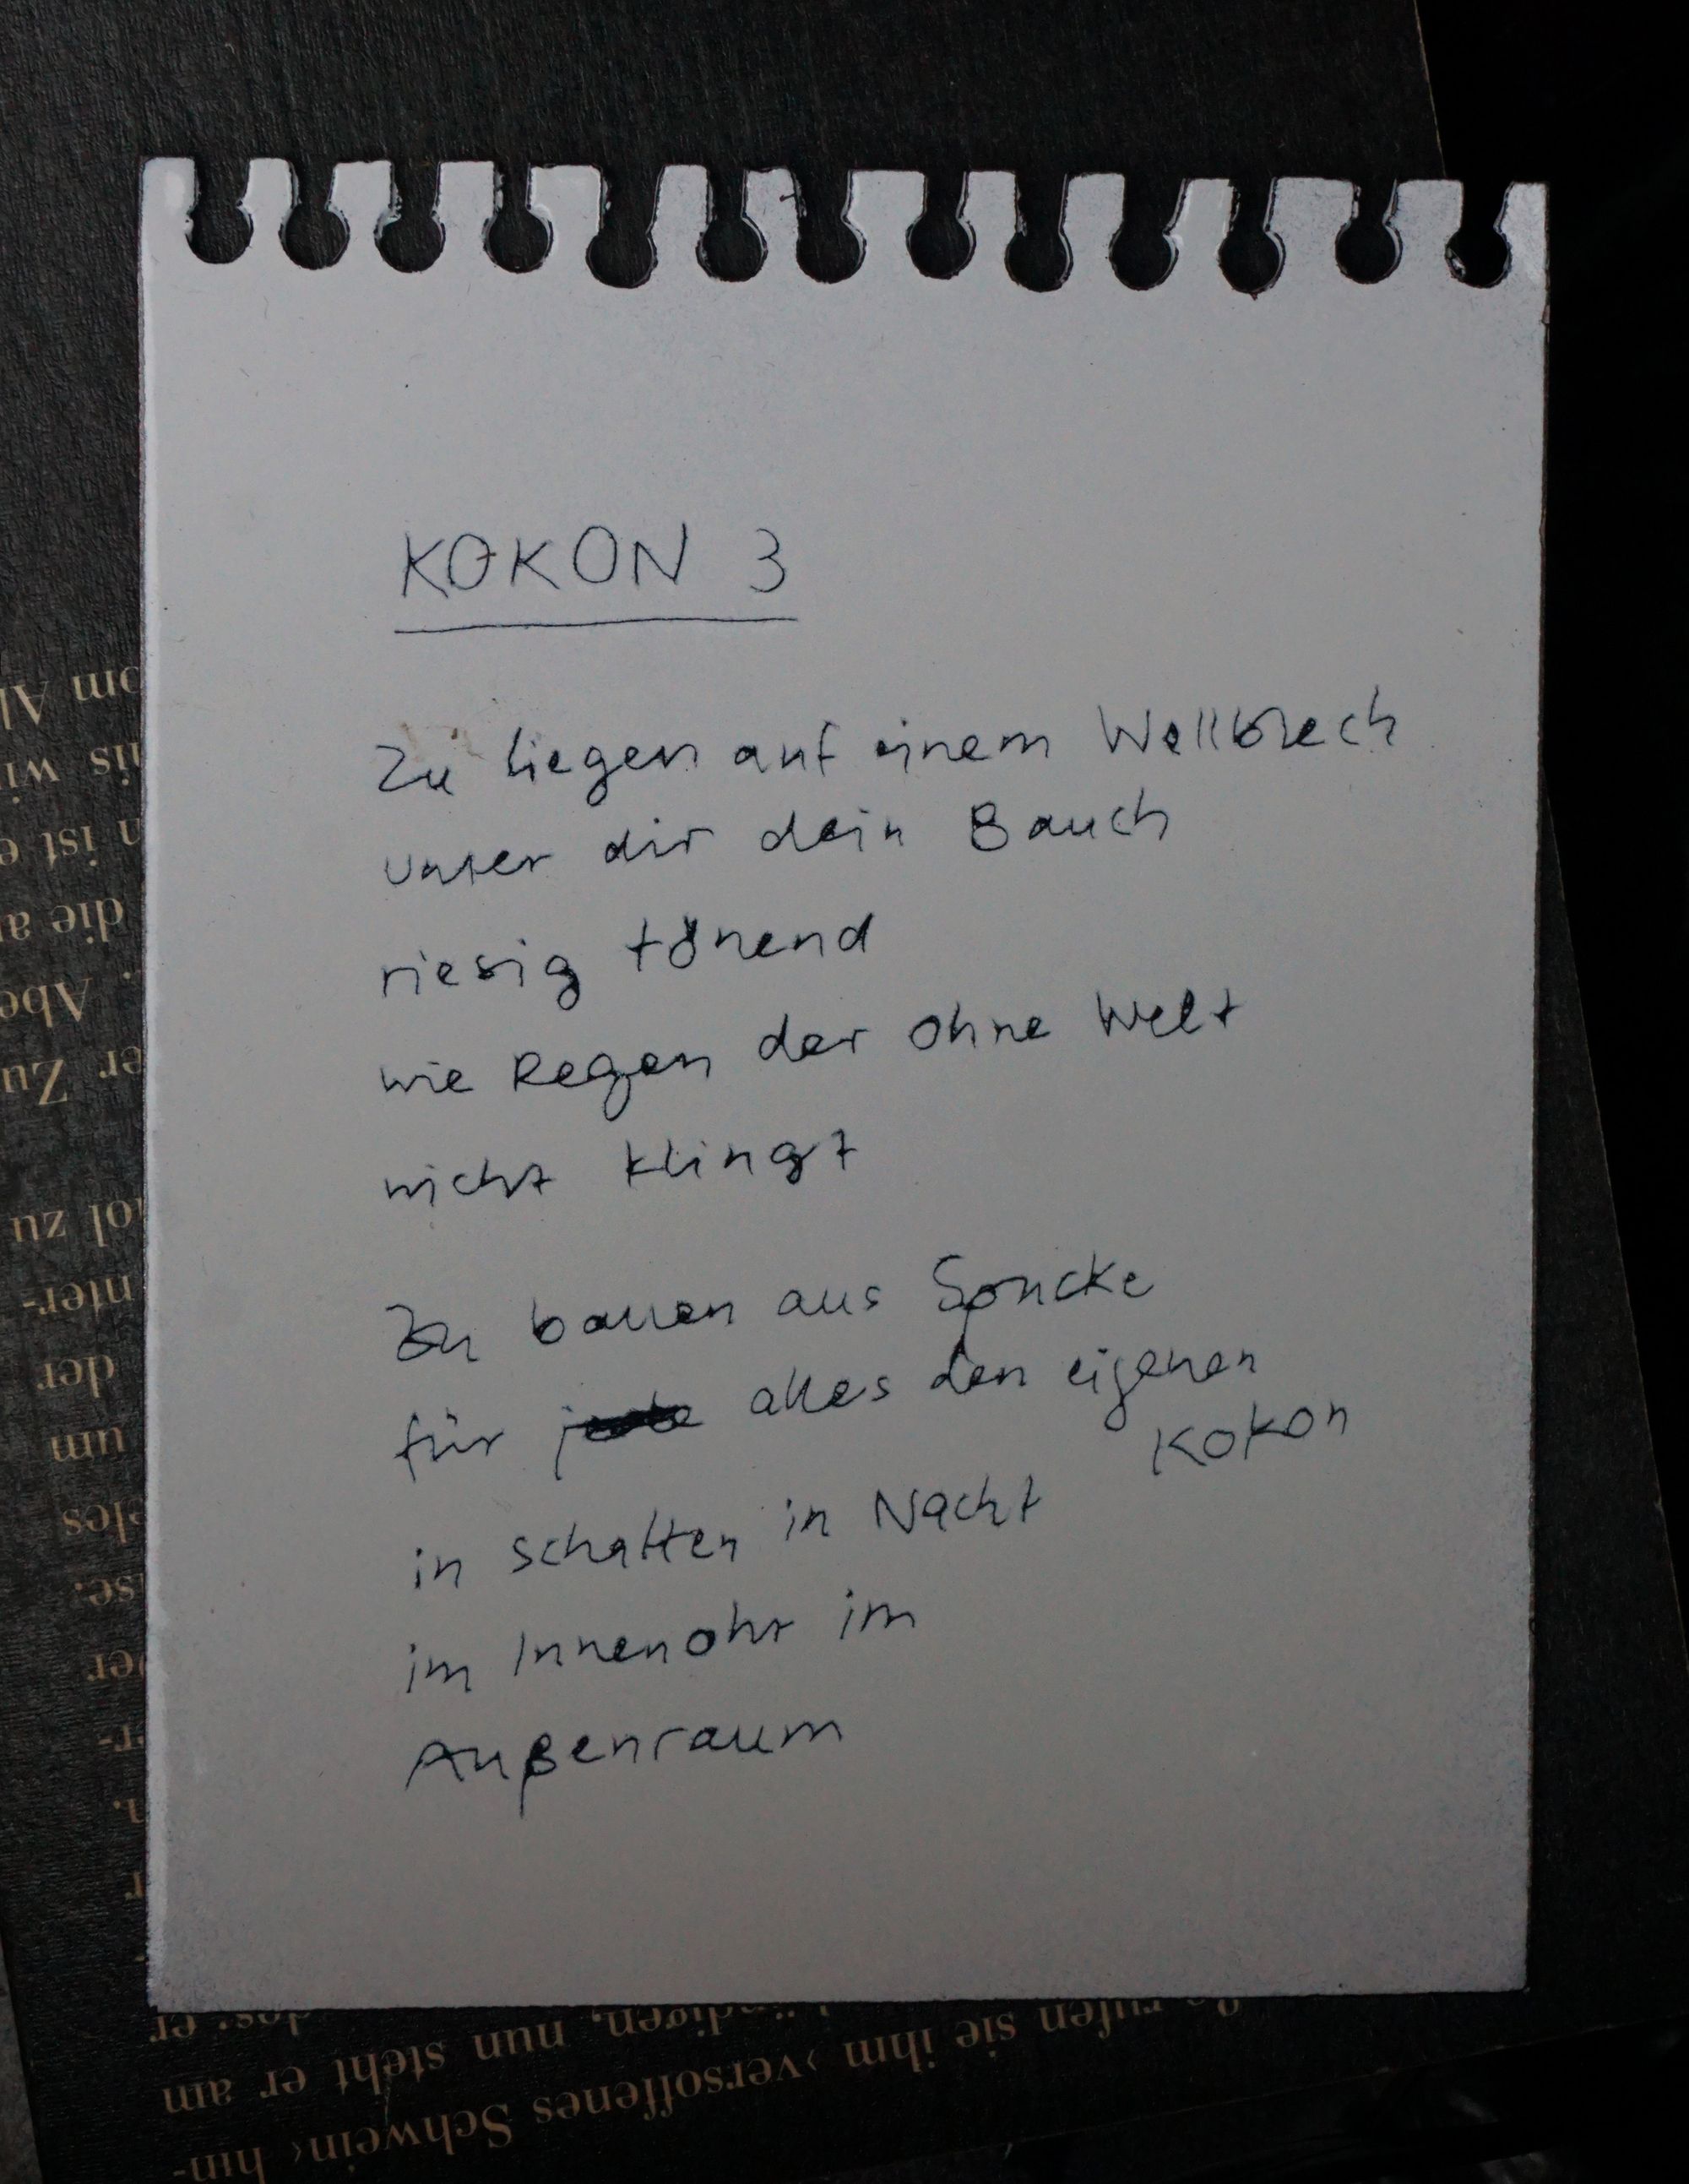 KOKON 3
Zu liegen auf einem Wellblech
unter dir dein Bauch
riesig tönend
wie Regen der ohne Welt
nicht klingt
Zu bauen aus Spucke
für alles den eigenen
Kokon
in schatten in Nacht
im Innenohr im
Außenraum
om Al
nis wi
n ist e
die a
. Abe
er Zu
ol zu
nter-
der
um
eles
se.
er
r-
n.
r
des: er
digen, nun steht er am
rufen sie ihm ›versoffenes Schwein‹ hin-